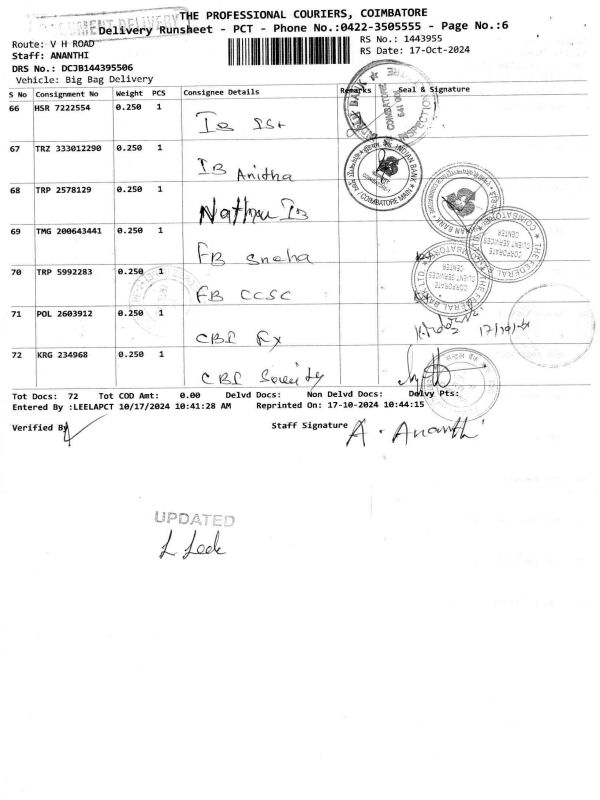 DOCUMENT DELIVERY
THE PROFESSIONAL COURIERS, COIMBATORE
Delivery Runsheet - PCT - Phone No.:0422-3505555 - Page No.:6
Route: V H ROAD
RS No.: 1443955
Staff: ANANTHI
RS Date: 17-Oct-2024
DRS No.: DCJB144395506
Vehicle: Big Bag Delivery
S No Consignment No Weight PCS Consignee Details Remarks Seal & Signature
66 HSR 7222554 0.250 1
67 TRZ 333012290 0.250 1 IB Anitha
68 TRP 2578129 0.250 1 IB
69 TMG 200643441 0.250 1 FB Sneha
70 TRP 5992283 0.250 1 FB CCSC
71 POL 2603912 0.250 1 CBI Fx
72 KRG 234968 0.250 1 CBI
COIMBATORE
641 001
INSPECTION
INDIAN BANK
COIMBATORE MAIN
THE FEDERAL BANK LTD
CORPORATE
CLIENT SERVICES
CENTER
COIMBATORE
THE FEDERAL BANK LTD
CORPORATE
CLIENT SERVICES
CENTER
Tot Docs: 72 Tot COD Amt: 0.00 Delvd Docs: Non Delvd Docs: Delvy Pts:
Entered By :LEELAPCT 10/17/2024 10:41:28 AM Reprinted On: 17-10-2024 10:44:15
Verified By
Staff Signature A. Ananthi
UPDATED